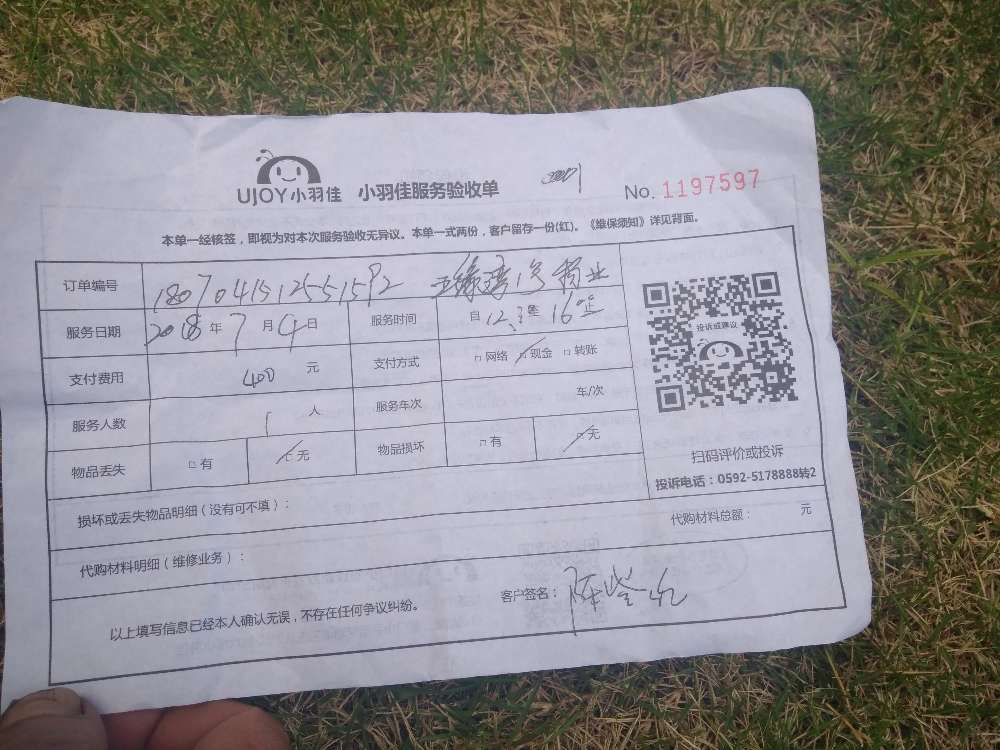 UJOY小羽佳 小羽佳服务验收单 No. 1197597
本单一经核签，即视为对本次服务验收无异议。本单一式两份，客户留存一份(红)。《维保须知》详见背面。
订单编号 1807041512551592 1号
服务日期 2018年7月4日 服务时间 自12 至16
支付费用 400 元 支付方式 □网络 □现金 □转账
服务人数 1 人 服务车次 车/次
物品丢失 □有 □无 物品损坏 □有 □无
投诉或建议
扫码评价或投诉
投诉电话：0592-5178888转2
损坏或丢失物品明细（没有可不填）：
代购材料明细（维修业务）： 代购材料总额： 元
以上填写信息已经本人确认无误，不存在任何争议纠纷。 客户签名：